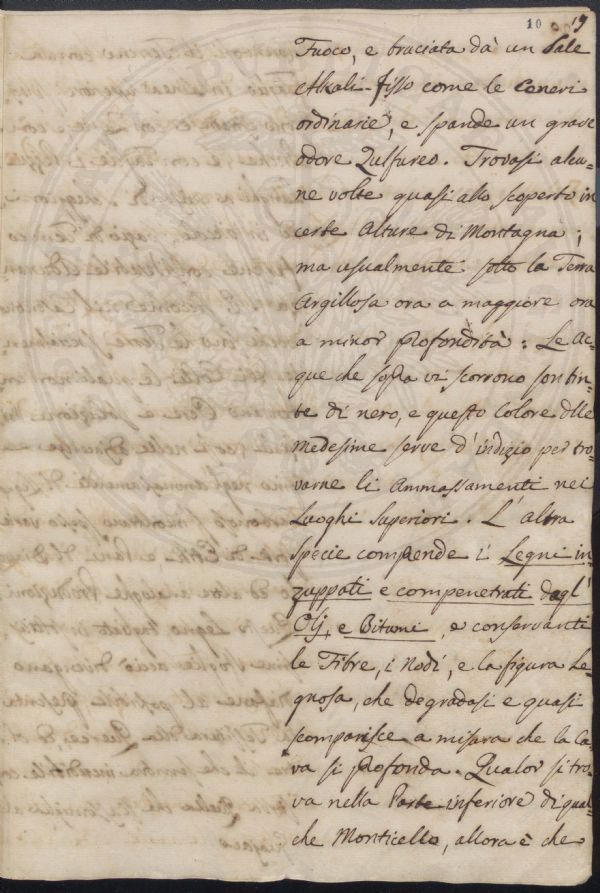 10 19
Fuoco, e bruciata dà un Sale
Alkali-fisso come le Ceneri
ordinarie, e spande un grave
odore Zulfureo. Trovasi alcu-
ne volte quasi allo scoperto in
certe Alture di Montagna;
ma usualmente sotto la Terra
Argillosa ora a maggiore ora
a minor profondità: Le Ac-
que che sopra vi scorrono son tin-
te di nero, e questo Colore dlle
medesime serve d'indizio per tro-
varne li Ammassamenti nei
Luoghi Superiori. L'altra
specie comprende i Legni in-
zuppati e compenetrati dagl'
Olj, e Bitumi, e conservanti
le Fibre, i nodi, e la figura Le-
gnosa, che degradasi e quasi
scomparisce a misura che la Ca-
va si profonda. Qualor si tro-
va nella Parte inferiore di qual-
che Monticello, allora è che